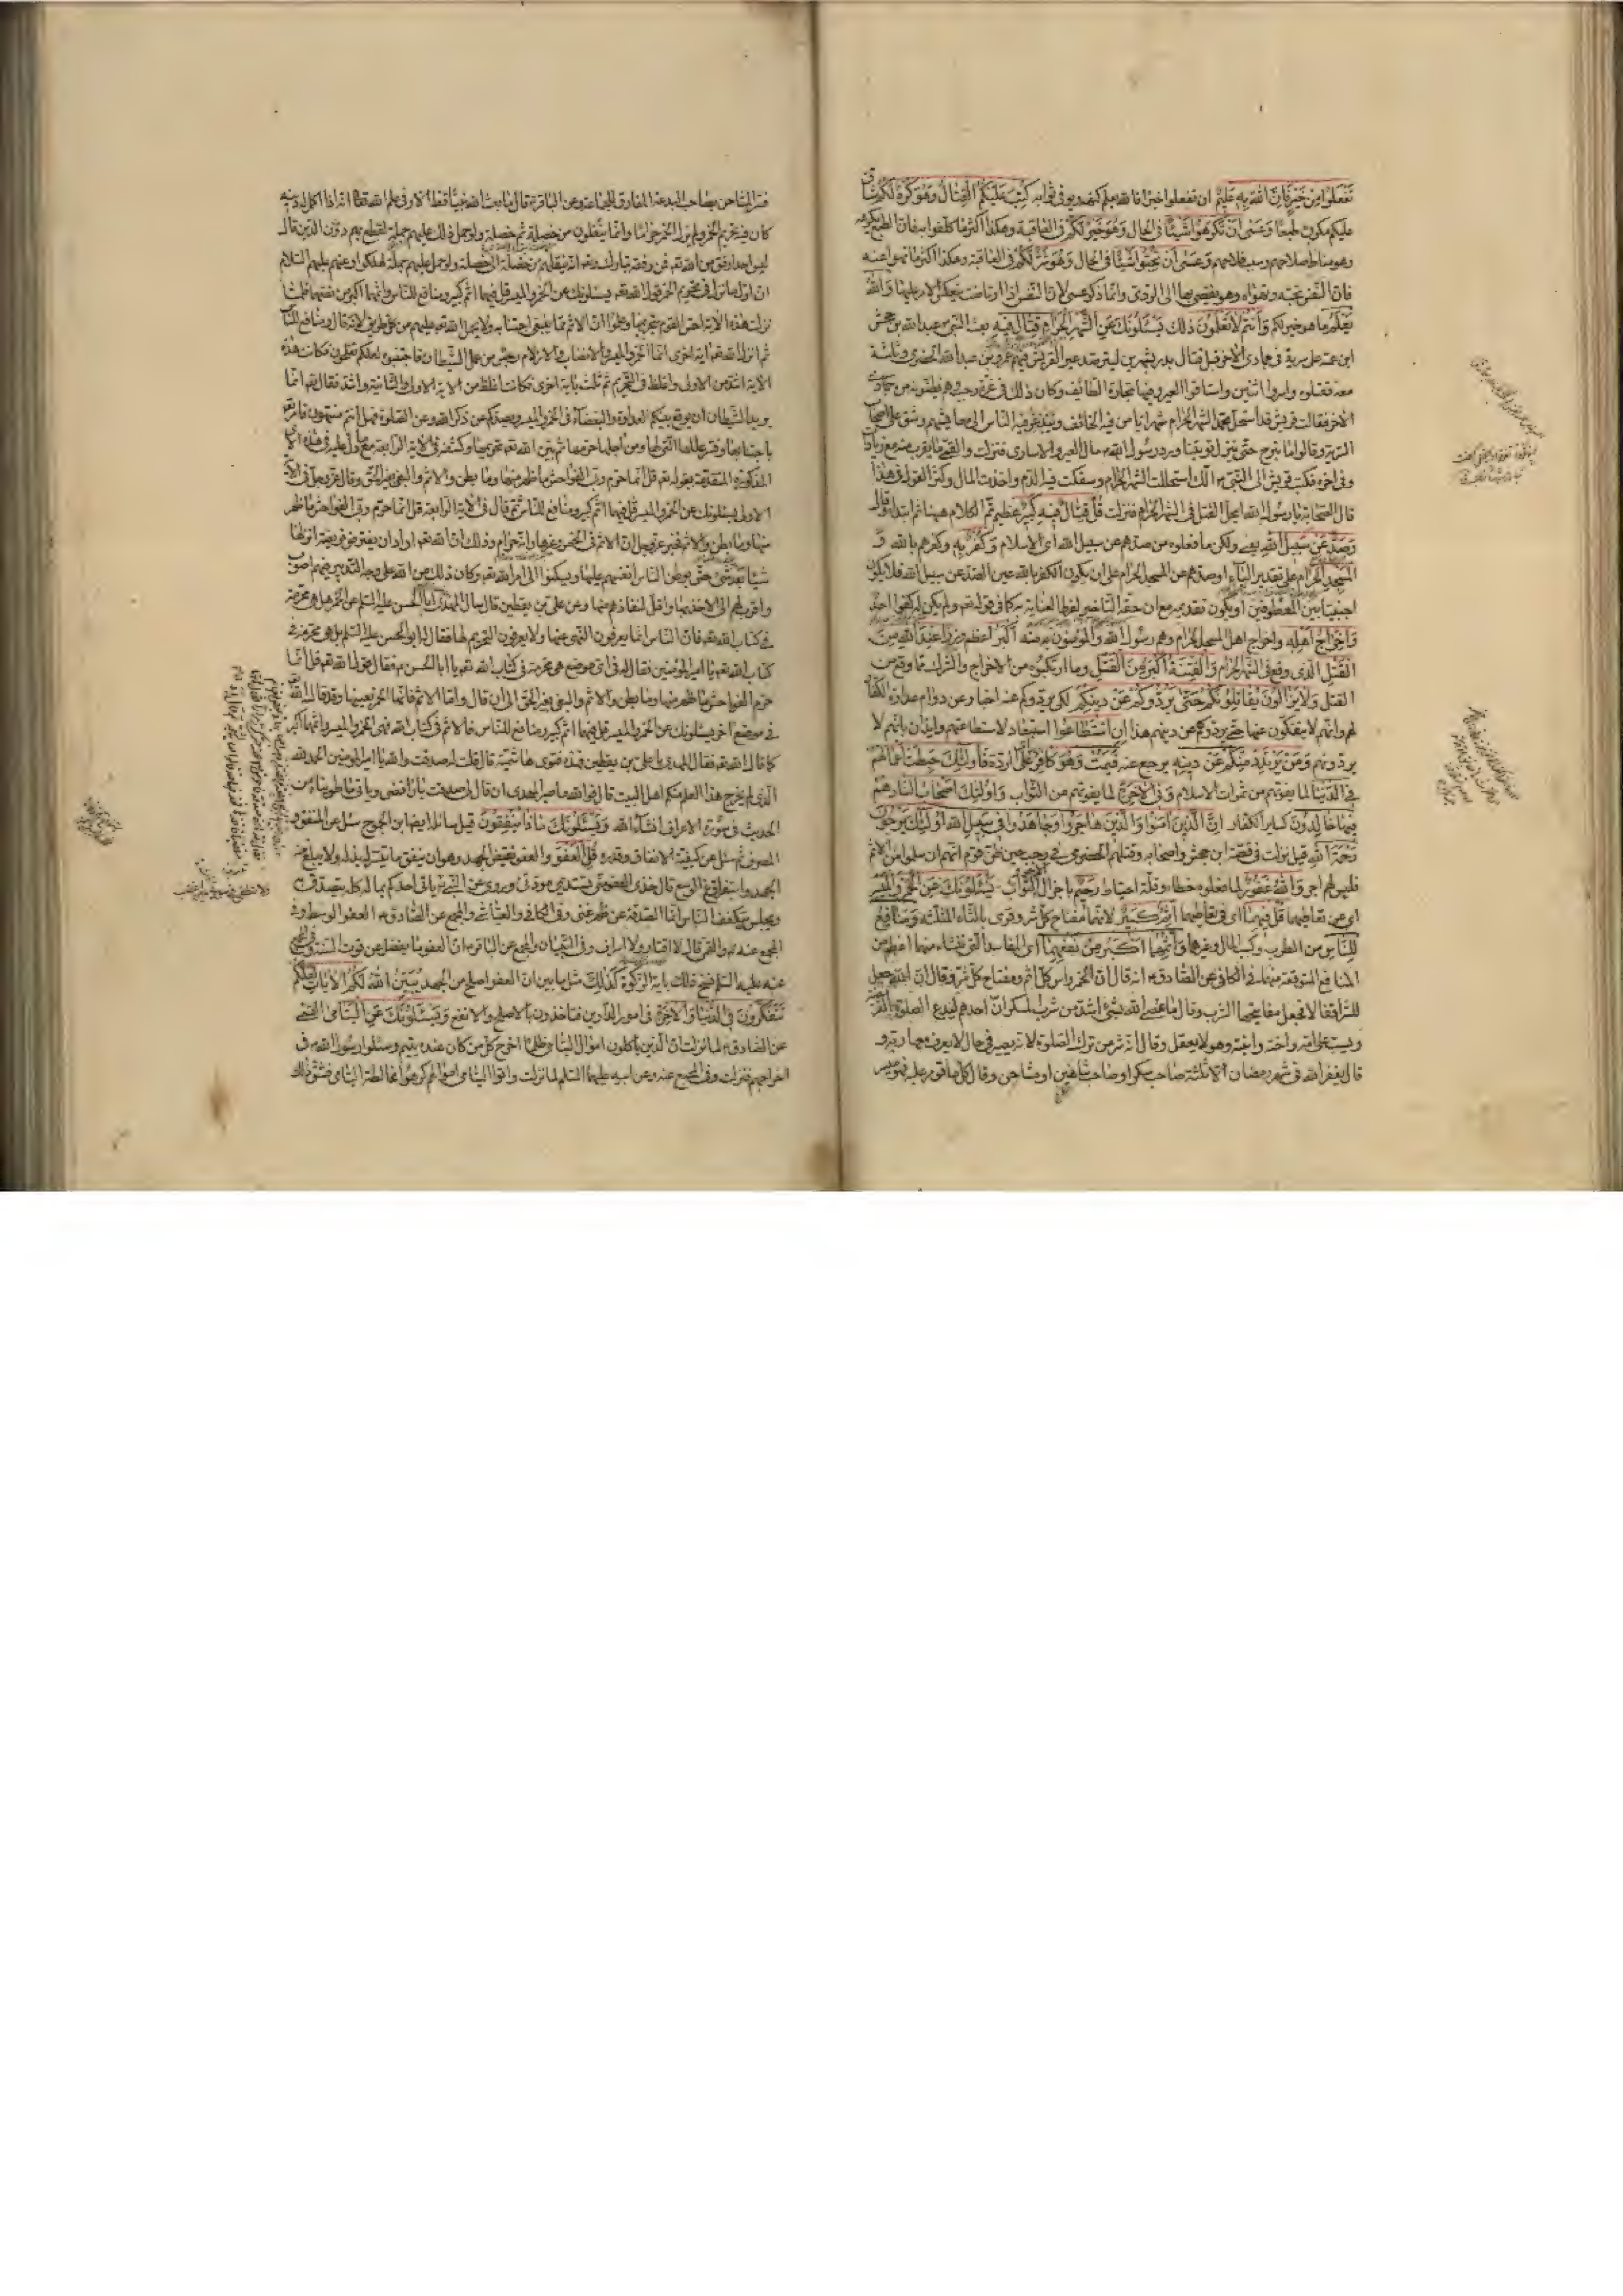 تَفْعَلُوا مِنْ خَيْرٍ فَإِنَّ اللَّهَ بِهِ عَلِيمٌ ان تفعلوا خيرا فان الله يعلم كنهه ويوفى ثوابه كُتِبَ عَلَيْكُمُ الْقِتَالُ وَهُوَ كُرْهٌ لَكُمْ شاق
عليكم مكروه طبعا وَعَسَى أَنْ تَكْرَهُوا شَيْئًا في الحال وَهُوَ خَيْرٌ لَكُمْ في العاقبة وهكذا أكثر ما كلفوا به فان الطبع يكرهه
وهو مناط صلاحهم وسبب فلاحهم وَعَسَى أَنْ تُحِبُّوا شَيْئًا في الحال وَهُوَ شَرٌّ لَكُمْ في العاقبة وهكذا أكثر ما نهوا عنه
فان النفس تحبه وتهواه وهو يفضي بها إلى الردى وانما ذكر عسى لان النفس إذا ارتاضت ينعكس الامر عليها وَاللَّهُ
يَعْلَمُ ما هو خير لكم وَأَنْتُمْ لَا تَعْلَمُونَ ذلك يَسْئَلُونَكَ عَنِ الشَّهْرِ الْحَرَامِ قِتَالٍ فِيهِ بعث النبي ص عبد الله بن جحش
ابن عمته على سرية في جمادى الآخرة قبل قتال بدر بشهرين ليترصد عير القريش فيهم عمرو بن عبد الله الحضرمي وثلاثة
معه فقتلوه وأسروا اثنين واستاقوا العير وفيها تجارة الطائف وكان ذلك في غرة رجب وهم يظنونه من جمادى
الآخر فقالت قريش قد استحل محمد الشهر الحرام شهرا يأمن فيه الخائف ويبذعر فيه الناس إلى معايشهم وشق على أصحاب
السرية وقالوا ما نبرح حتى تنزل توبتنا ورد رسول الله ص مال العير والاسارى فنزلت والقمي ما يقرب منه مع زيادات
وفي آخره فكتب قريش إلى النبي ص انك استحللت الشهر الحرام وسفكت فيه الدم واخذت المال وكثر القول في هذا
قال الصحابة يا رسول الله أيحل القتل في الشهر الحرام فنزلت قُلْ قِتَالٌ فِيهِ كَبِيرٌ عظيم تم الكلام هيهنا ثم ابتدأ وقال
وَصَدٌّ عَنْ سَبِيلِ اللَّهِ يعني ولكن ما فعلوه من صدهم عن سبيل الله أي الاسلام وَكُفْرٌ بِهِ وكفرهم بالله وَ
الْمَسْجِدِ الْحَرَامِ على تقدير الباء أو صدهم عن المسجد الحرام على أن يكون الكفر بالله عين الصد عن سبيل الله فلا يكون
اجنبيا بين المعطوفين أو يكون تقديمه مع ان حقه التأخير لفرط العناية به كما في قوله تعالى ولم يكن له كفوا أحد
وَإِخْرَاجُ أَهْلِهِ واخراج أهل المسجد الحرام وهم رسول الله والمؤمنون مِنْهُ أَكْبَرُ أعظم وزرا عِنْدَ اللَّهِ من
القتل الذي وقع في الشهر الحرام وَالْفِتْنَةُ أَكْبَرُ مِنَ الْقَتْلِ وما ارتكبوه من الاخراج والشرك مما وقع من
القتل وَلَا يَزَالُونَ يُقَاتِلُونَكُمْ حَتَّى يَرُدُّوكُمْ عَنْ دِينِكُمْ لكي يردوكم عنه اخبار عن دوام عداوة الكفار
لهم وانهم لا ينفكون عنها حتى يردوهم عن دينهم هذا إِنِ اسْتَطَاعُوا استبعاد لاستطاعتهم وايذان بانهم لا
يردونهم وَمَنْ يَرْتَدِدْ مِنْكُمْ عَنْ دِينِهِ يرجع عنه فَيَمُتْ وَهُوَ كَافِرٌ على الردة فَأُولَئِكَ حَبِطَتْ أَعْمَالُهُمْ
فِي الدُّنْيَا لما يفوتهم من ثمرات الاسلام وَفي الْآخِرَةِ لما يفوتهم من الثواب وَأُولَئِكَ أَصْحَابُ النَّارِ هُمْ
فِيهَا خَالِدُونَ كساير الكفار إِنَّ الَّذِينَ آمَنُوا وَالَّذِينَ هَاجَرُوا وَجَاهَدُوا فِي سَبِيلِ اللَّهِ أُولَئِكَ يَرْجُونَ
رَحْمَةَ اللَّهِ قيل نزلت في قصة ابن جحش وأصحابه وقتلهم الحضرمي في رجب حين ظن قوم انهم ان سلموا من الاثم
فليس لهم اجر وَاللَّهُ غَفُورٌ لما فعلوه خطاء وقلة احتياط رَحِيمٌ باجزال الثواب يَسْئَلُونَكَ عَنِ الْخَمْرِ وَالْمَيْسِرِ
اي عن تعاطيهما قُلْ فِيهِمَا اي في تعاطيهما إِثْمٌ كَبِيرٌ لانهما مفتاح كل شر وقرئ بالثاء المثلثة وَمَنَافِعُ
لِلنَّاسِ من الطرب وكسب المال وغيرهما وَإِثْمُهُمَا أَكْبَرُ مِنْ نَفْعِهِمَا أي المفاسد التي تنشاء منهما أعظم من
المنافع المتوقعة منهما في الكافي عن الصادق ع انه قال ان الخمر رأس كل اثم ومفتاح كل شر وقال ان الله جعل
للشر اقفالا فجعل مفاتيحها الشرب وقال ما عصى الله بشئ أشد من شرب المسكر ان أحدهم ليدع الصلوة الفريضة
ويثب على أمه واخته وابنته وهو لا يعقل وقال انه شر من ترك الصلوة لأنه يصير في حال لا يعرف معها ربه و
قال يغفر الله في شهر رمضان الا لثلثة صاحب مسكر أو صاحب شاهين أو مشاحن وقال كل ما قومر عليه فهو ميسر
فسر المشاحن بصاحب البدعة المفارق للجماعة وعن الباقر ع قال ما بعث الله نبيا قط الا وفي علم الله تعالى انه إذا أكمل له دينه
كان فيه تحريم الخمر ولم يزل الخمر حراما وانما ينقلون من خصلة ثم خصلة ولو حمل ذلك عليهم جملة لقطع بهم دون الدين قال
ليس احد ارفق من الله تعالى فمن رفقه تبارك وتعالى انه ينقلهم من خصلة إلى خصلة ولو حمل عليهم جملة لهلكوا وعنهم عليهم السلام
ان أول ما نزل في تحريم الخمر قول الله تعالى يسئلونك عن الخمر والميسر قل فيهما اثم كبير ومنافع للناس واثمهما أكبر من نفعهما فلما
نزلت هذه الآية احس القوم بتحريمها وعلموا ان الاثم مما ينبغي اجتنابه ولا يحمل الله تعالى عليهم من كل طريق لأنه قال ومنافع للناس
ثم انزل الله تعالى آية أخرى انما الخمر والميسر والأنصاب والأزلام رجس من عمل الشيطان فاجتنبوه لعلكم تفلحون فكانت هذه
الآية أشد من الأولى واغلظ في التحريم ثم ثلث بآية أخرى فكانت اغلظ من الآية الأولى والثانية وأشد فقال تعالى انما
يريد الشيطان أن يوقع بينكم العداوة والبغضاء في الخمر والميسر ويصدكم عن ذكر الله وعن الصلوة فهل أنتم منتهون فامر تعالى
باجتنابها وفسر عللها التي لها ومن أجلها حرمها ثم بين الله تعالى تحريمها وكشفه في الآية الرابعة مع ما دل عليه في هذه الآي
المذكورة المتقدمة بقوله تعالى قل انما حرم ربي الفواحش ما ظهر منها وما بطن والاثم والبغي بغير الحق وقال عز وجل في الآية
الأولى يسئلونك عن الخمر والميسر قل فيهما اثم كبير ومنافع للناس ثم قال في الآية الرابعة قل انما حرم ربي الفواحش ما ظهر
منها وما بطن والاثم فخبر عز وجل ان الاثم في الخمر وغيرها وانه حرام وذلك ان الله تعالى إذا أراد أن يفترض فريضة انزلها
شيئا بعد شئ حتى يوطن الناس أنفسهم عليها ويسكنوا إلى امر الله تعالى وكان ذلك من الله على وجه التدبير فيهم أصوب
واقرب لهم إلى الاخذ بها وأقل لنفارهم عنها وعن علي بن يقطين قال سأل المهدي أبا الحسن عليه السلام عن الخمر هل هي محرمة
في كتاب الله تعالى فان الناس انما يعرفون النهي عنها ولا يعرفون التحريم لها فقال له أبو الحسن عليه السلام بل هي محرمة في
كتاب الله تعالى يا أمير المؤمنين فقال له في اي موضع هي محرمة في كتاب الله تعالى يا أبا الحسن ع فقال قول الله تعالى قل انما
حرم الفواحش ما ظهر منها وما بطن والاثم والبغي بغير الحق إلى أن قال واما الاثم فإنها الخمر بعينها وقد قال الله تعالى
في موضع آخر يسئلونك عن الخمر والميسر قل فيهما اثم كبير ومنافع للناس فالاثم في كتاب الله فهي الخمر والميسر واثمهما أكبر
كما قال الله تعالى فقال المهدي يا علي بن يقطين فهذه فتوى هاشمية قال قلت له صدقت والله يا أمير المؤمنين الحمد لله
الذي لم يخرج هذا العلم منكم أهل البيت قال فوالله ما صبر المهدي ان قال لي صدقت يا رافضي ويأتي ما طويناه من
الحديث في سورة الأعراف انشاء الله وَيَسْئَلُونَكَ مَاذَا يُنْفِقُونَ قيل سائله أيضا ابن الجموح سئل عن المنفق و
المصرف ثم سئل عن كيفية الانفاق وقدره قُلِ الْعَفْوَ والعفو نقيض الجهد وهو ان ينفق ما تيسر له بذله ولا يبلغ منه
الجهد واستفراغ الوسع قال خذي العفو مني تستديمي مودتي وروي عن النبي ص يأتي أحدكم بماله كله يتصدق به
ويجلس يتكفف الناس انما الصدقة عن ظهر غنى وفي الكافي والعياشي والمجمع عن الصادق ع العفو الوسط وفي
المجمع عنه ع والقمي قال لا اقتار ولا اسراف وفي التبيان والمجمع عن الباقر ع ان العفو ما يفضل عن قوت السنة
عنه عليه السلام نسخ ذلك بآية الزكوة كَذَلِكَ مثل ما بين ان العفو أصلح من الجهد يُبَيِّنُ اللَّهُ لَكُمُ الْآيَاتِ لَعَلَّكُمْ
تَتَفَكَّرُونَ فِي الدُّنْيَا وَالْآخِرَةِ في أمور الدارين فتأخذون بالأصلح والأنفع وَيَسْئَلُونَكَ عَنِ الْيَتَامَى القمي
عن الصادق ع لما نزلت ان الذين يأكلون أموال اليتامى ظلما اخرج كل من كان عنده يتيم وسئلوا رسول الله ص في
اخراجهم فنزلت وفي المجمع عنه وعن أبيه عليهما السلام لما نزلت وآتوا اليتامى أموالهم كرهوا مخالطة اليتامى فشق ذلك